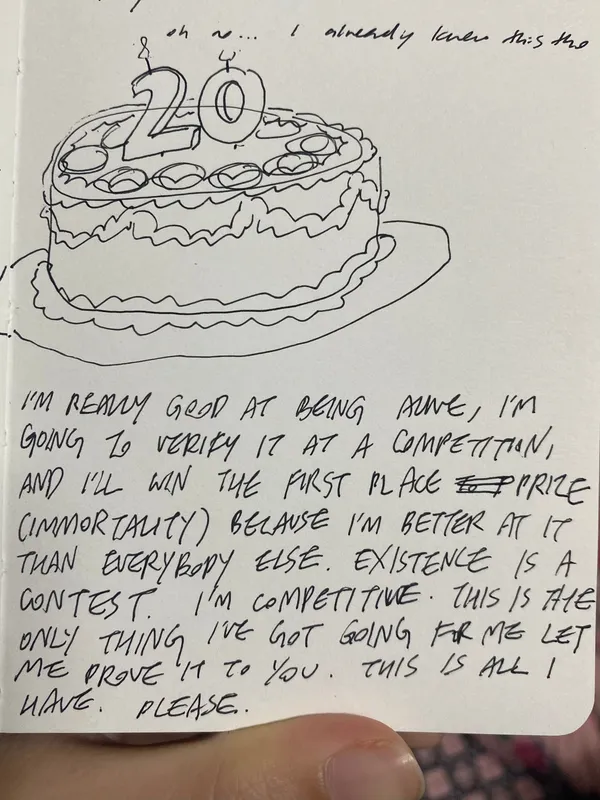 oh no... I already knew this tho
20
I'M REALLY GOOD AT BEING ALIVE, I'M
GOING TO VERIFY IT AT A COMPETITION,
AND I'LL WIN THE FIRST PLACE PRIZE
(IMMORTALITY) BECAUSE I'M BETTER AT IT
THAN EVERYBODY ELSE. EXISTENCE IS A
CONTEST. I'M COMPETITIVE. THIS IS THE
ONLY THING I'VE GOT GOING FOR ME LET
ME PROVE IT TO YOU. THIS IS ALL I
HAVE. PLEASE.